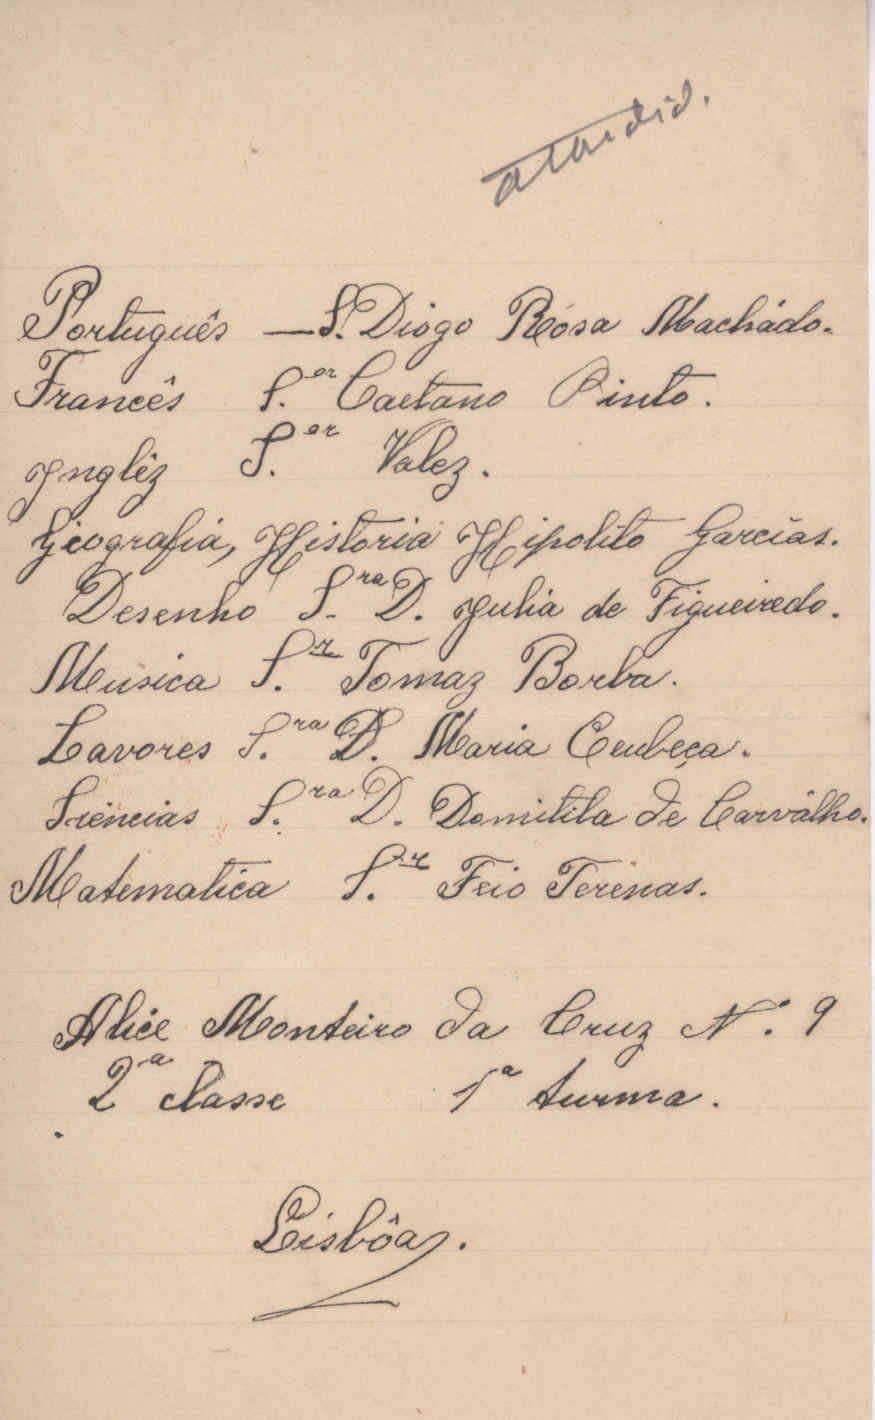 Português — S. Diogo Rosa Machádo.
Francês S.or Caetano Pinto.
Ingliz S.or Valez.
Geografia, Historia Hipolito Garcias.
Desenho S.ra D. Julia de Figueiredo.
Musica S.r Tomaz Borba.
Lavores S.ra D. Maria
Siencias S.ra D. Domitila de Carválho.
Matematica S.r Feio Terenas.
Alice Monteiro da Cruz N.º 9
2ª classe 1ª turma.
Lisbôa.